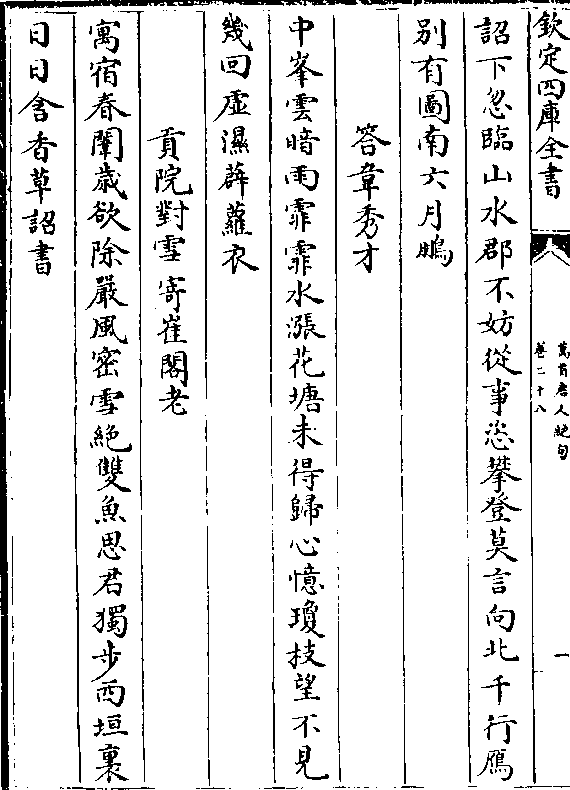 欽定四庫全書
萬首唐人絕句
卷二十八
一
詔下忽臨山水郡不妨從事恣攀登莫言向北千行鴈
别有圖南六月鵬
答韋秀才
中峯雲暗雨霏霏水漲花塘未得歸心憶瓊枝望不見
幾回虛濕薜蘿衣
貢院對雪寄崔閣老
寓宿春闈歳欲除嚴風密雪絶雙魚思君獨步西垣裏
日日含香草詔書